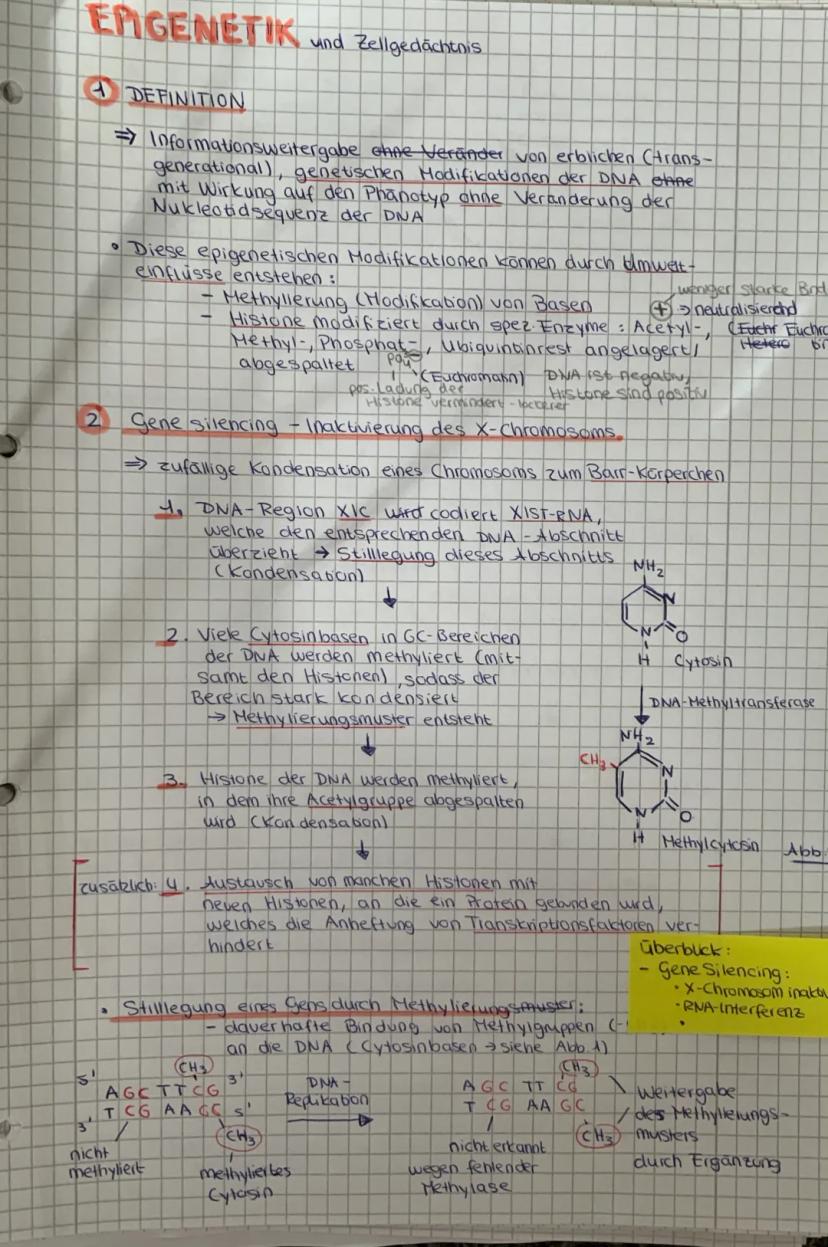 EPIGENETIK und Zellgedächtnis
1 DEFINITION
⇒ Informationsweitergabe ohne Veränder von erblichen (trans-
generational), genetischen Modifikationen der DNA ohne
mit Wirkung auf den Phänotyp ohne Veränderung der
Nukleotidsequenz der DNA
• Diese epigenetischen Modifikationen können durch Umwelt-
einflüsse entstehen:
weniger starke Bind
- Methylierung (Modifikation) von Basen
+ ⇒ neutralisierend
- Histone modifiziert durch spez. Enzyme: Acetyl-, (Euchr Euchro
Methyl-, Phosphat-, Ubiquitinrest angelagert/
Hetero
abgespaltet
(Euchromatin) DNA ist negativ,
pos. Ladung der Histone sind positiv
Histone vermindert - lockerer
2 Gene silencing - Inaktivierung des X-Chromosoms
⇒ zufällige Kondensation eines Chromosoms zum Barr-Körperchen
1. DNA-Region XIC wird codiert XIST-RNA,
welche den entsprechenden DNA-Abschnitt
überzieht → Stilllegung dieses Abschnitts
(Kondensation)
NH2
N
N
O
H Cytosin
2. Viele Cytosinbasen in GC-Bereichen
der DNA werden methyliert (mit-
samt den Histonen), sodass der
Bereich stark kondensiert
→ Methylierungsmuster entsteht
DNA-Methyltransferase
NH2
CH3
N
N
O
H Methylcytosin Abb
3. Histone der DNA werden methyliert,
in dem ihre Acetylgruppe abgespalten
wird (Kondensation)
zusätzlich: 4. Austausch von manchen Histonen mit
neuen Histonen, an die ein Protein gebunden wird,
welches die Anheftung von Transkriptionsfaktoren ver-
hindert
Überblick:
- Gene Silencing:
• X-Chromosom inaktiv
• RNA-Interferenz
•
• Stilllegung eines Gens durch Methylierungsmuster:
- dauerhafte Bindung von Methylgruppen (-
an die DNA (Cytosinbasen → siehe Abb. 1)
CH3
5' AGC TT CG 3'
3' T CG AA GC 5'
CH3
nicht
methyliert
methyliertes
Cytosin
DNA-
Replikation
CH3
AGC TT CG
T CG AA GC
CH3
nicht erkannt
wegen fehlender
Methylase
Weitergabe
des Methylierungs-
musters
durch Ergänzung